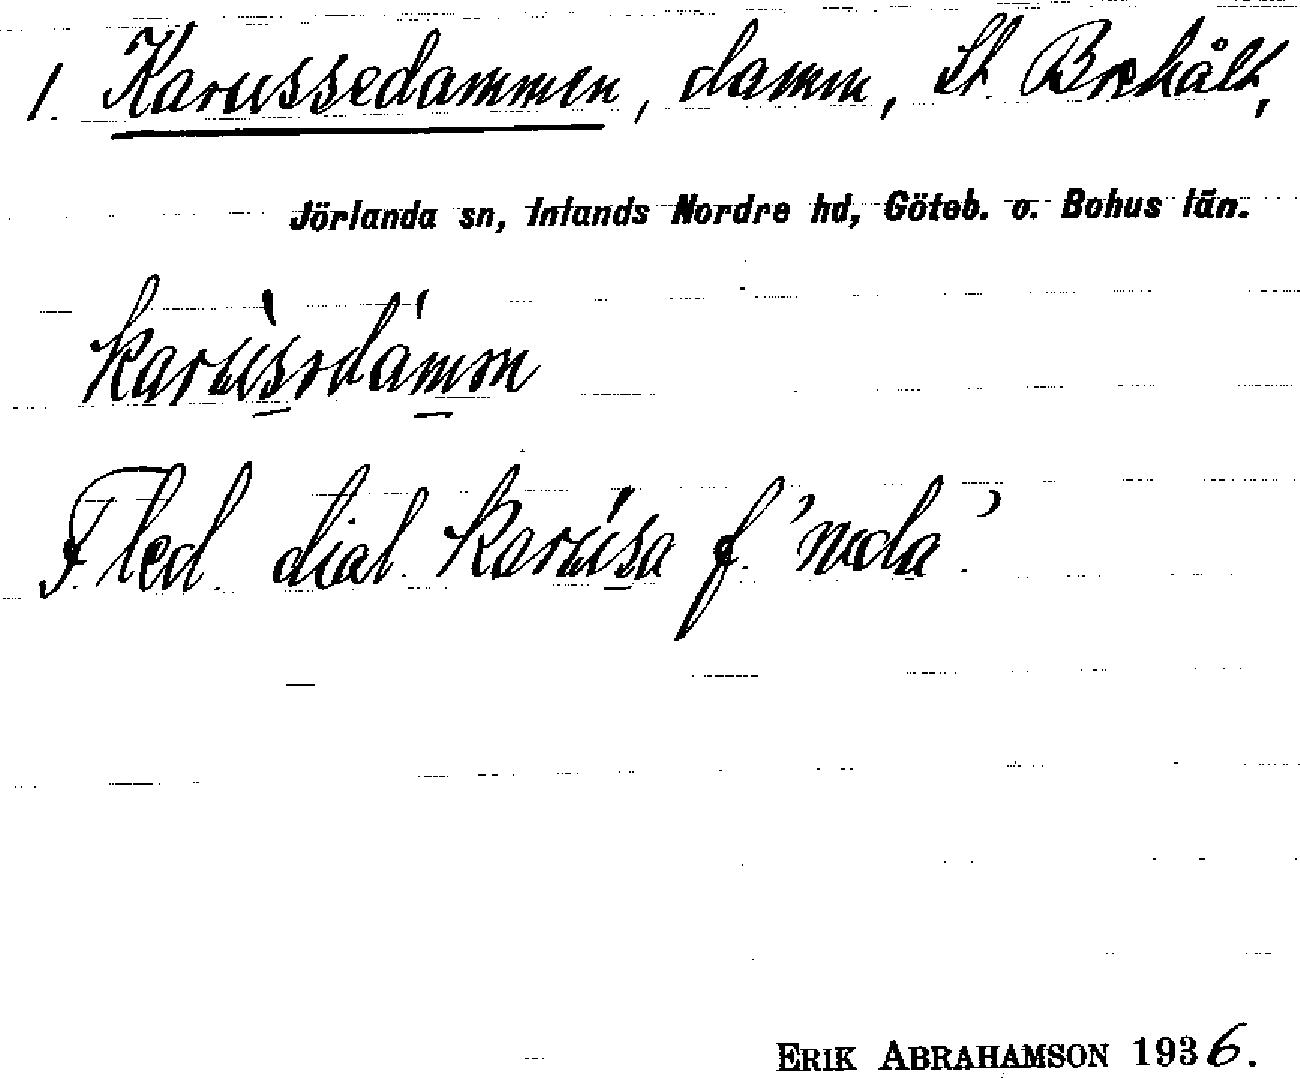 1. Karussedammen, damm, St. Brehält,
Jörlanda sn, Inlands Nordre hd, Göteb. o. Bohus län.
karùsrdámm
F. led. dial. karùsa f. 'ruda'.
ERIK ABRAHAMSON 1936.